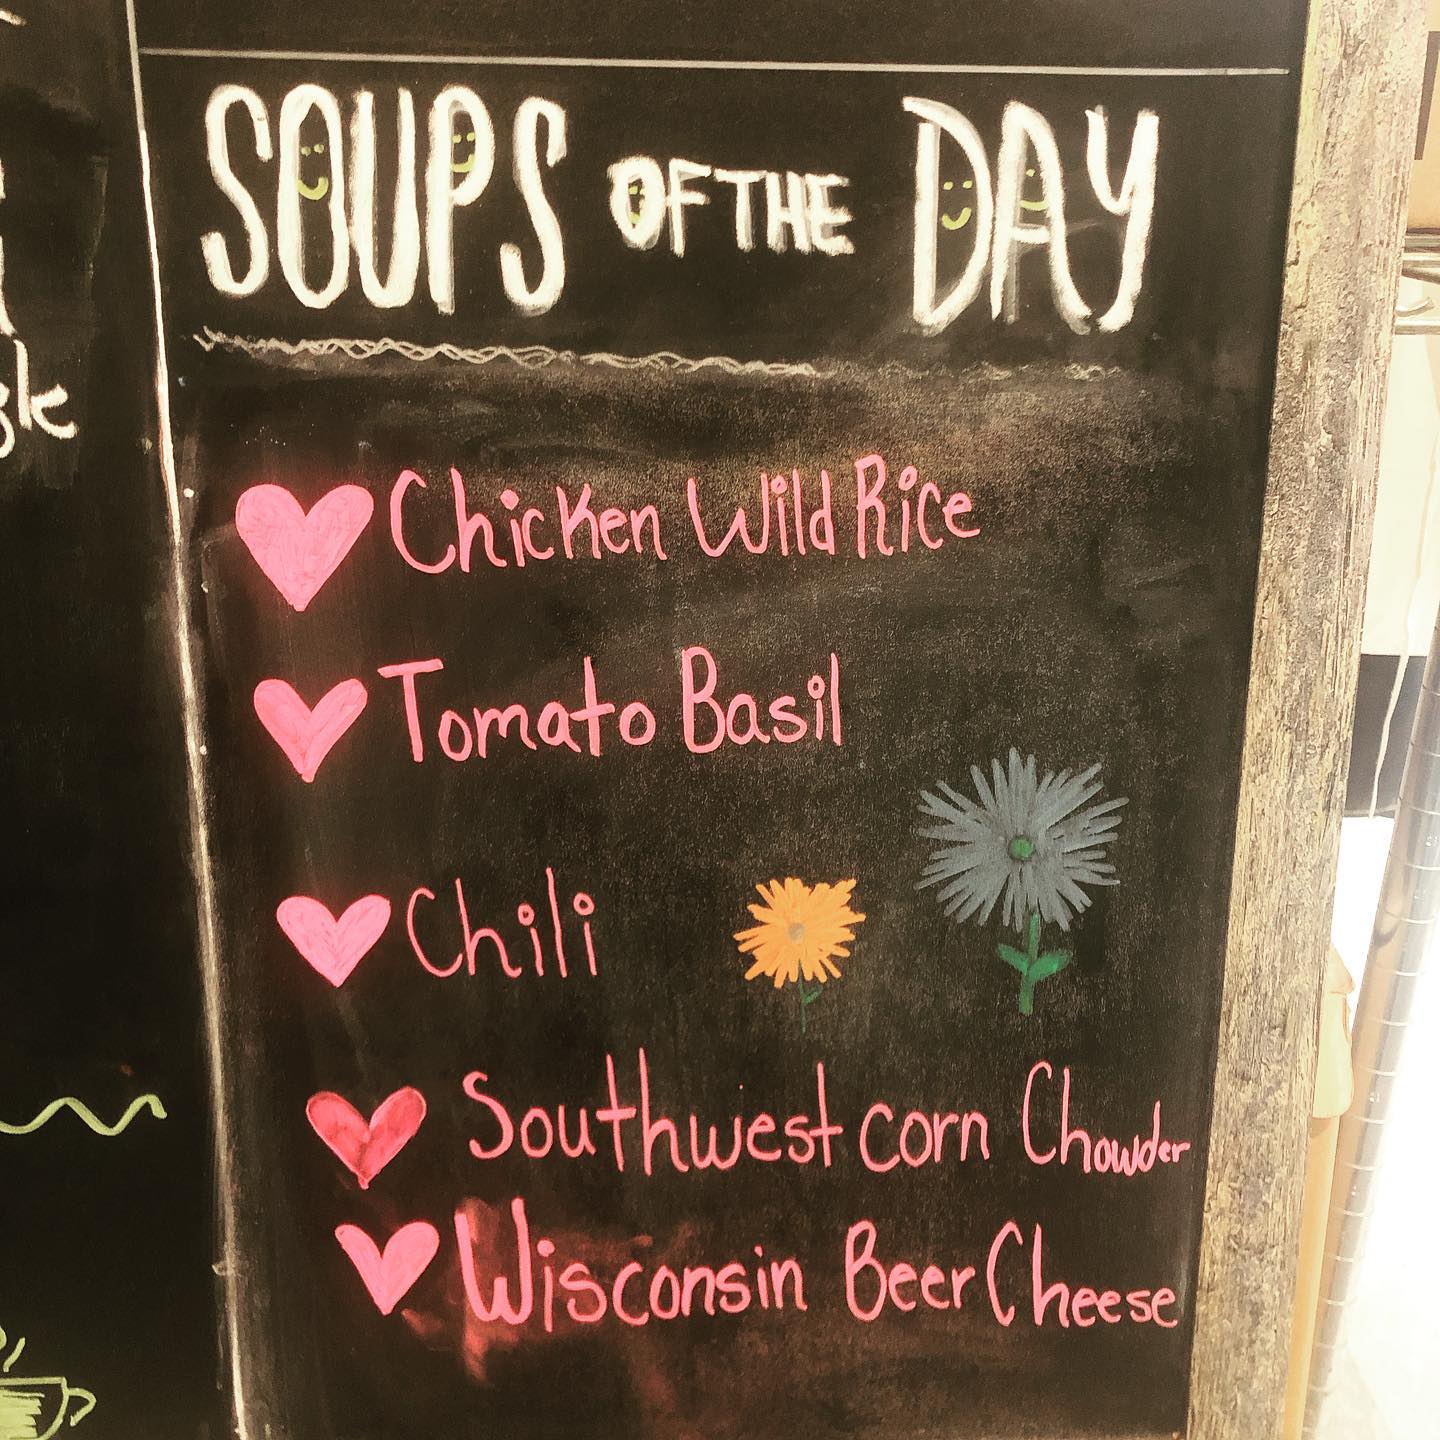 SOUPS OF THE DAY
Chicken Wild Rice
Tomato Basil
Chili
Southwest corn Chowder
Wisconsin Beer Cheese